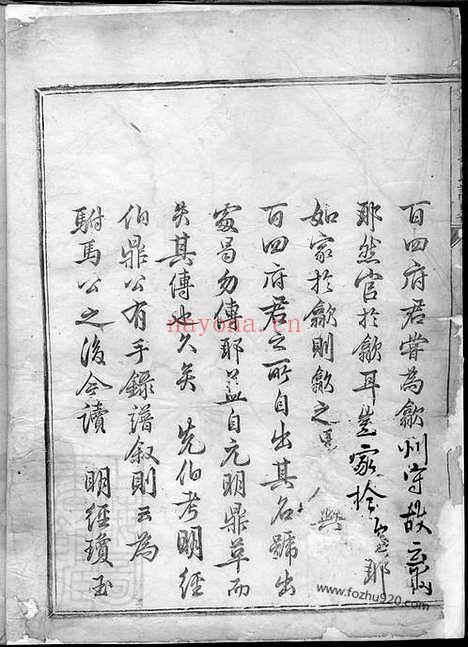 百四府君嘗為歙州守故
耶然官於歙耳豈家於歙耶
如家於歙則歙之
百四府君之所自出其名號出
處曷勿傳耶蓋自元明鼎革而
失其傳也久矣 先伯考明經
伯鼎公有手錄譜叙則云為
駙馬公之後今讀 明經瓊玉
nayona.cn
www.fozhu920.com